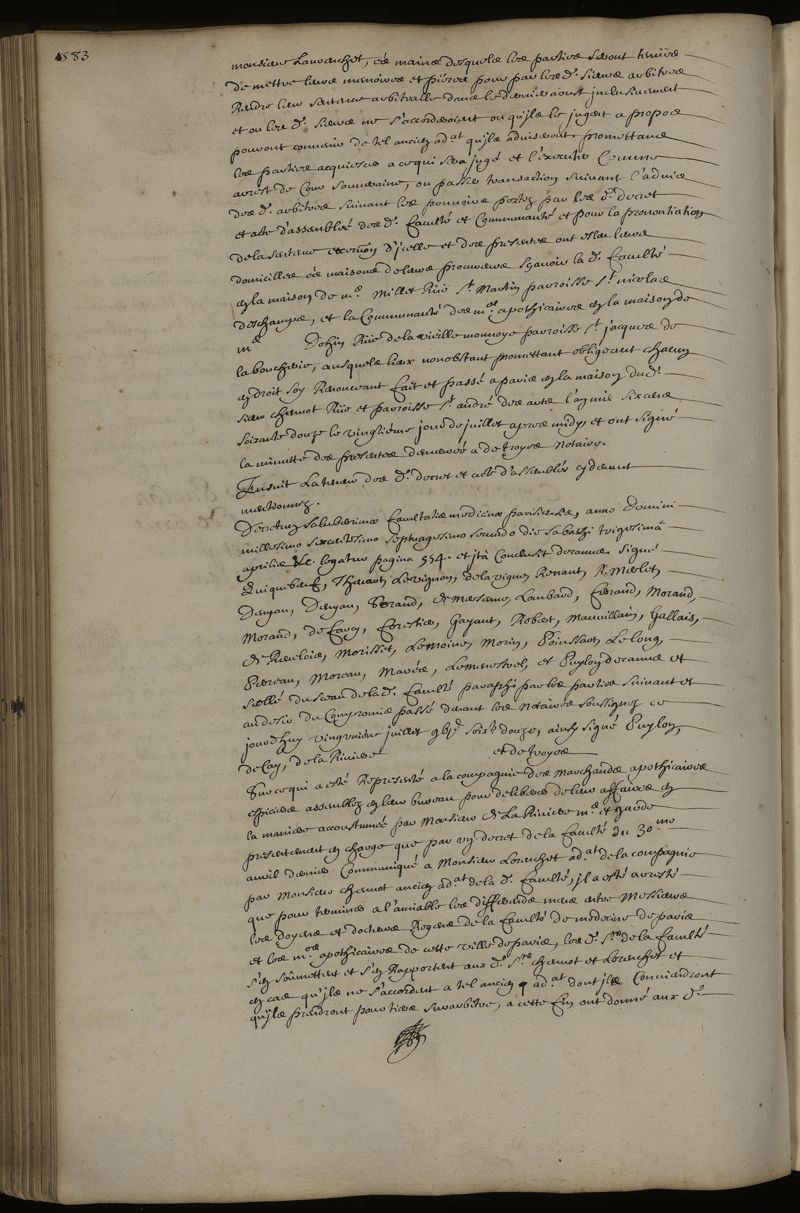 583
monsieur Lauvenchet, ès mains desquels les parties seront tenües
de mettre leurs memoires et pieces pour par les d. sieurs arbitres
Rendre leur sentence arbitralle dans le dernier aoust inclusivement
et ou les d. sieurs ne s'accorderoient ou qu'ils le jugent a propos
pouront convenir de tel ancien ad.at qu'ils adviseront promettans
les parties acquiescer a ce qui sera jugé et l'executer Comme
arrest de Cour Souveraine, ou passer transaction suivant l'advis
des d. arbitres suivant les pouvoirs portez par les d. decret
et acte d'assemblée des d. faculté et Communauté et pour la prononciation
de la sentence execution d'icelle et des presentes ont esleu leurs
domicilles ès maisons de leurs procureurs sçavoir la d. faculté
en la maison de m.e Millet Rüe S.t Martin parroisse S.t nicolas
deschamps, et la Communauté des m.es apothicaires en la maison de
m.e Dohin Rüe de la vieille monnoye parroisse S.t jacques de
la boucherie, ausquels lieux nonobstant promettant obligeant chacun
en droit soy Renonceant fait et passé a paris en la maison du d.
sieur chemot Rüe et parroisse S.t andré des arts l'an mil six cens
soixante douze le vingtiéme jour de juillet apres midy, et ont signé
la minutte des presentes demeurée a de troyes notaire.
Ensuit La teneur des d. decret et acte d'assemblée cy devant
mentionnez.
Decretum saluberrimæ facultatis medicinæ parisiensis, anno Domini
millesimo sexcentesimo septuagesimo secundo die sabathi trigesimâ
aprilis &c. legatur pagina 554. et jtà Conclusit decanus. signé
Quiquebeuf, Thevart, Levignon, de la vigne, Renaut, R. Merlet,
Denyau, Denyau, Morand, de Mersenne, Lombard, Morand,
Morand, de Cavoy, forestier, Gayant, Robert, Mauvillain, Gallais,
de Morisset, Lemoine, Morin, Puissart, Le Long,
Perreau, Moreau, Mavée, Lemenestrel, et Puylon decanus et
scellé du sceau de la d. faculté paraphé par les parties suivant et
au desir du Compromis passé devant les notaires soussignez ce
jourd'huy vingtiesme juillet gbj.c soix.te douze, ainsy signé Puylon,
de Cay, de la Riviere et de troyes
Sur ce qui a esté Representé a la compagnie des marchands apothicaires
espiciers assemblez en leur bureau pour deliberer de leurs affaires en
la maniere accoustumée par Monsieur de La Riviere m.e et garde
presentement en charge que par un decret de la faculté du 30.me
avril dernier Communiqué a Monsieur Lorenchet ad.at de la compagnie
par Monsieur chemot ancien ad.at de la d. faculté, jl a esté arresté
que pour terminer a l'amiable les differends meus entre Messieurs
les doyens et docteurs Regens de la faculté de medecine de paris
et les m.es apothicaires de cette ville de paris, les d. S.rs de la faculté
s'en soûmettent et s'en Rapportent aux d. S.rs chemot et Lorenchet et
en cas qu'ils ne s'accordent a tel ancien ad.at dont jls Conviendront
qu'ils prendront pour tiers surarbitre, a cette fin ont donné aux d.